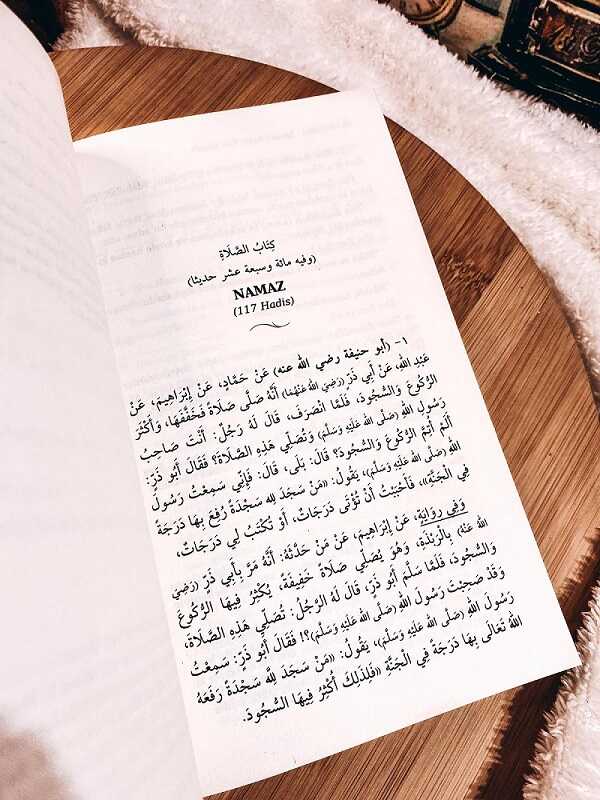 كِتَابُ الصَّلَاةِ
(وفيه مائة وسبعة عشر حديثا)
NAMAZ
(117 Hadis)
١- (أبو حنيفة رضي الله عنه) عَنْ حَمَّادٍ، عَنْ إِبْرَاهِيمَ، عَنْ
عَبْدِ اللهِ، عَنْ أَبِي ذَرٍّ (رَضِيَ اللهُ عَنْهُمَا) أَنَّهُ صَلَّى صَلَاةً فَخَفَّفَهَا، وَأَكْثَرَ
الرُّكُوعَ وَالسُّجُودَ، فَلَمَّا انْصَرَفَ، قَالَ لَهُ رَجُلٌ: أَنْتَ صَاحِبُ
رَسُولِ اللهِ (صَلَّى اللهُ عَلَيْهِ وَسَلَّمَ) وَتُصَلِّي هَذِهِ الصَّلَاةَ؟ فَقَالَ أَبُو ذَرٍّ:
أَلَمْ أُتِمَّ الرُّكُوعَ وَالسُّجُودَ؟ قَالَ: بَلَى، قَالَ: فَإِنِّي سَمِعْتُ رَسُولَ
اللهِ (صَلَّى اللهُ عَلَيْهِ وَسَلَّمَ)، يَقُولُ: «مَنْ سَجَدَ لِلهِ سَجْدَةً رُفِعَ بِهَا دَرَجَةً
فِي الْجَنَّةِ»، فَأَحْبَبْتُ أَنْ تُؤْتَى دَرَجَاتٌ، أَوْ تُكْتَبُ لِي دَرَجَاتٌ،
وَفِي رِوَايَةٍ، عَنْ إِبْرَاهِيمَ، عَنْ مَنْ حَدَّثَهُ: أَنَّهُ مَرَّ بِأَبِي ذَرٍّ (رَضِيَ
اللهُ عَنْهُ) بِالرَّبَذَةِ، وَهُوَ يُصَلِّي صَلَاةً خَفِيفَةً، يُكْثِرُ فِيهَا الرُّكُوعَ
وَالسُّجُودَ، فَلَمَّا سَلَّمَ أَبُو ذَرٍّ، قَالَ لَهُ الرَّجُلُ: تُصَلِّي هَذِهِ الصَّلَاةَ،
وَقَدْ صَحِبْتَ رَسُولَ اللهِ (صَلَّى اللهُ عَلَيْهِ وَسَلَّمَ)؟! فَقَالَ أَبُو ذَرٍّ: سَمِعْتُ
رَسُولَ اللهِ (صَلَّى اللهُ عَلَيْهِ وَسَلَّمَ)، يَقُولُ: «مَنْ سَجَدَ لِلَّهِ سَجْدَةً رَفَعَهُ
اللهُ تَعَالَى بِهَا دَرَجَةً فِي الْجَنَّةِ «فَلِذَلِكَ أُكْثِرُ فِيهَا السُّجُودَ.